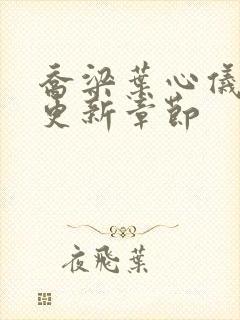 乔梁葉心儀
更新章節
夜飛葉